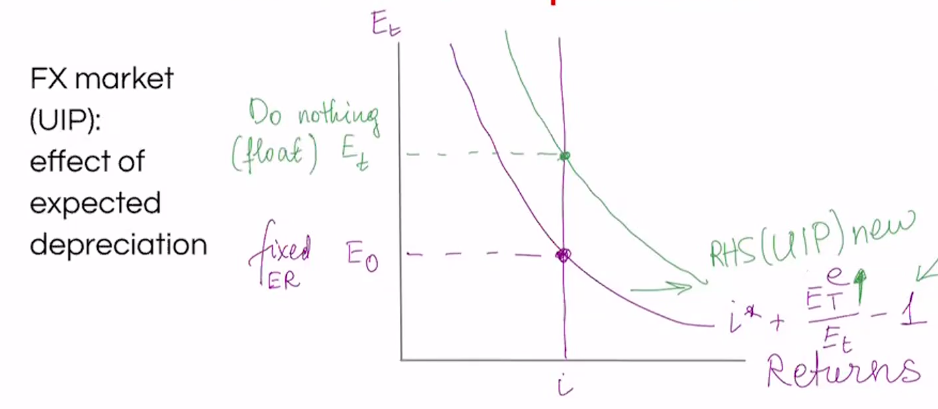 E_t
FX market
(UIP):
effect of
expected
depreciation
Do nothing
(float) E_t
fixed E_0
ER
RHS (UIP) new
i* + E_T^e↑/E_t - 1
Returns
i